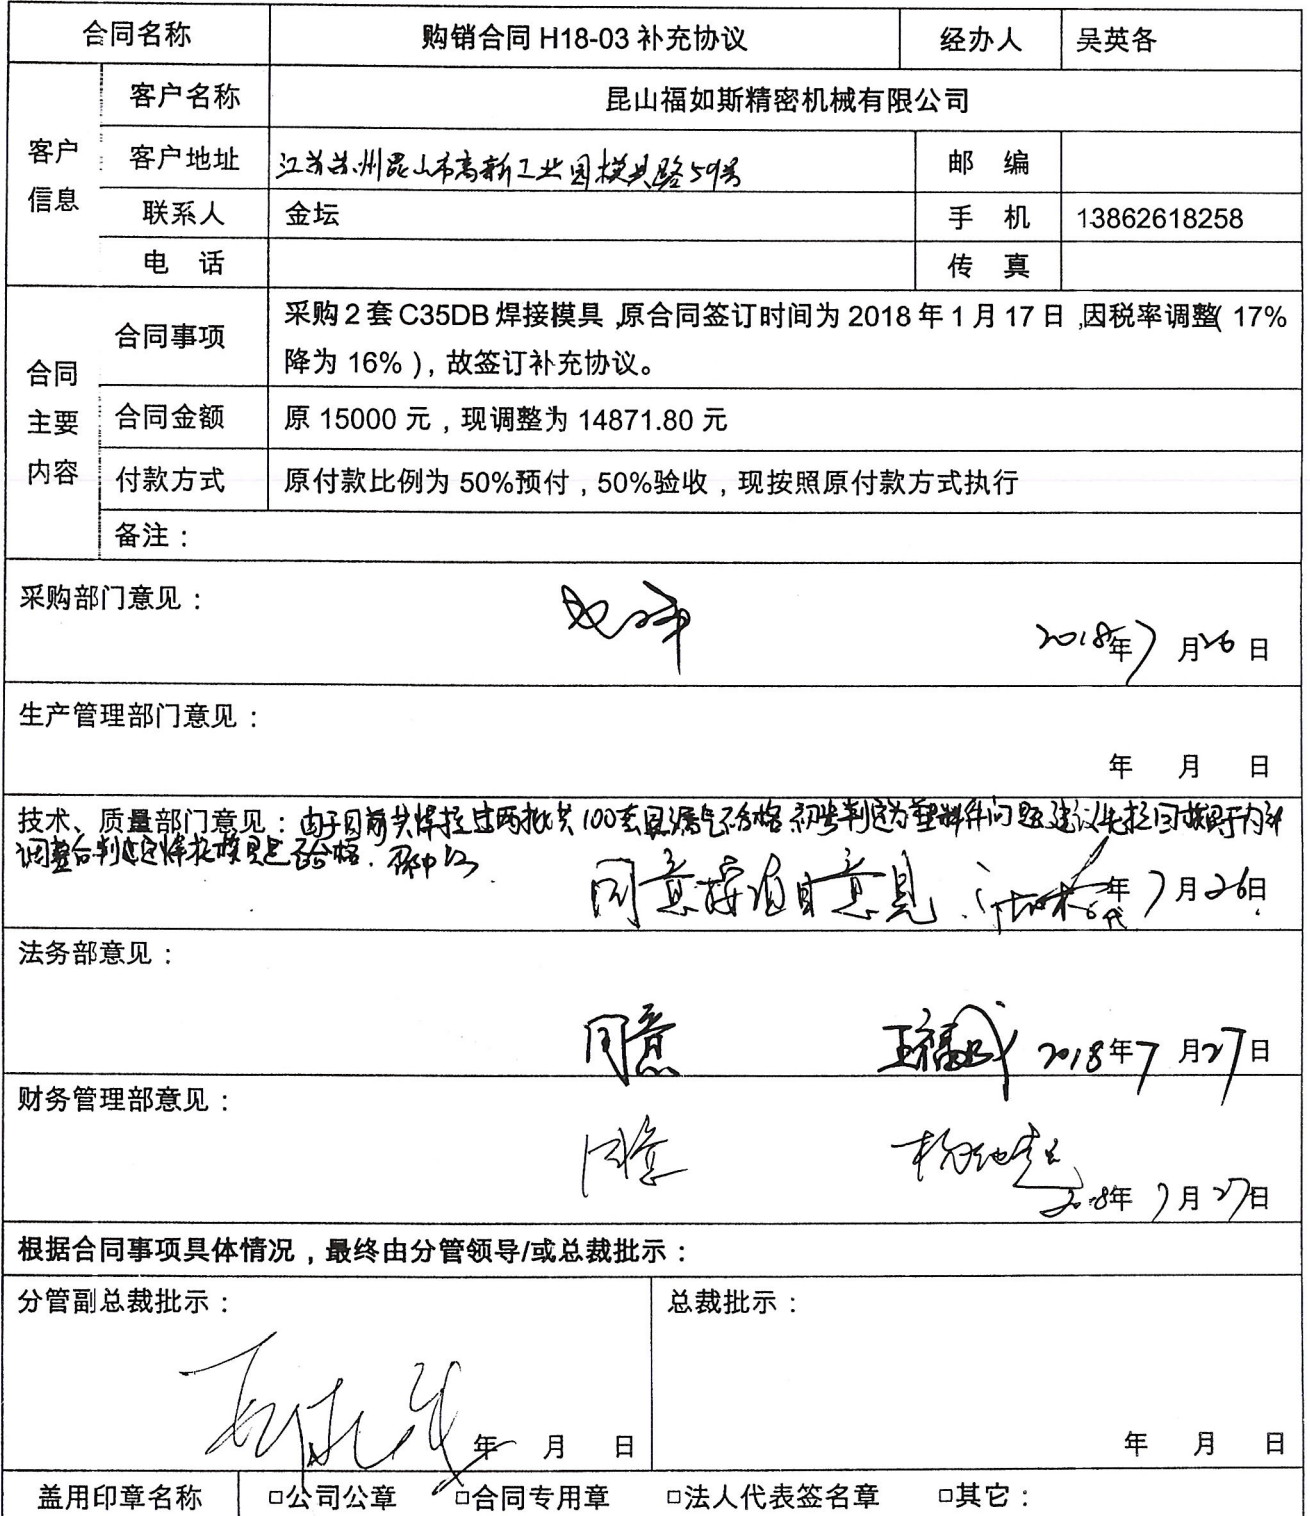 合同名称 购销合同 H18-03 补充协议 经办人 吴英各
客户信息
客户名称 昆山福如斯精密机械有限公司
客户地址 江苏苏州昆山市高新工业园模具路59号 邮 编
联系人 金坛 手 机 13862618258
电 话 传 真
合同主要内容
合同事项 采购 2 套 C35DB 焊接模具,原合同签订时间为 2018 年 1 月 17 日,因税率调整( 17%
降为 16% ),故签订补充协议。
合同金额 原 15000 元,现调整为 14871.80 元
付款方式 原付款比例为 50%预付,50%验收,现按照原付款方式执行
备注:
采购部门意见:
2018年7月26日
生产管理部门意见:
年 月 日
技术、质量部门意见:由于目前共焊接过两批共100套且漏气不合格 初步判定为塑料件问题 建议先拉回模具于内部
调整后判定焊接模具是否合格.
同意按项目意见 年7月26日
法务部意见:
同意 2018年7月27日
财务管理部意见:
同意
2018年7月27日
根据合同事项具体情况,最终由分管领导/或总裁批示:
分管副总裁批示: 总裁批示:
年 月 日 年 月 日
盖用印章名称 □公司公章 □合同专用章 □法人代表签名章 □其它: